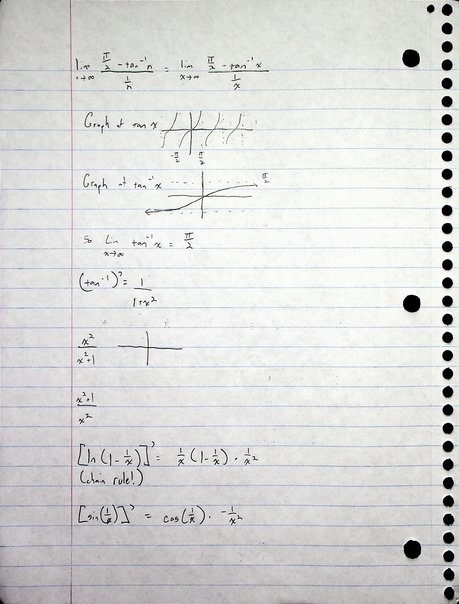 lim n→∞ (π/2 - tan⁻¹n)/(1/n) = lim x→∞ (π/2 - tan⁻¹x)/(1/x)
Graph of tan x
-π/2 π/2
Graph of tan⁻¹x π/2
So Lim x→∞ tan⁻¹x = π/2
(tan⁻¹)' = 1/(1+x²)
x²/(x²+1)
(x²+1)/x²
[ln(1-1/x)]' = 1/x (1-1/x) · 1/x²
(chain rule!)
[sin(1/x)]' = cos(1/x) · -1/x²